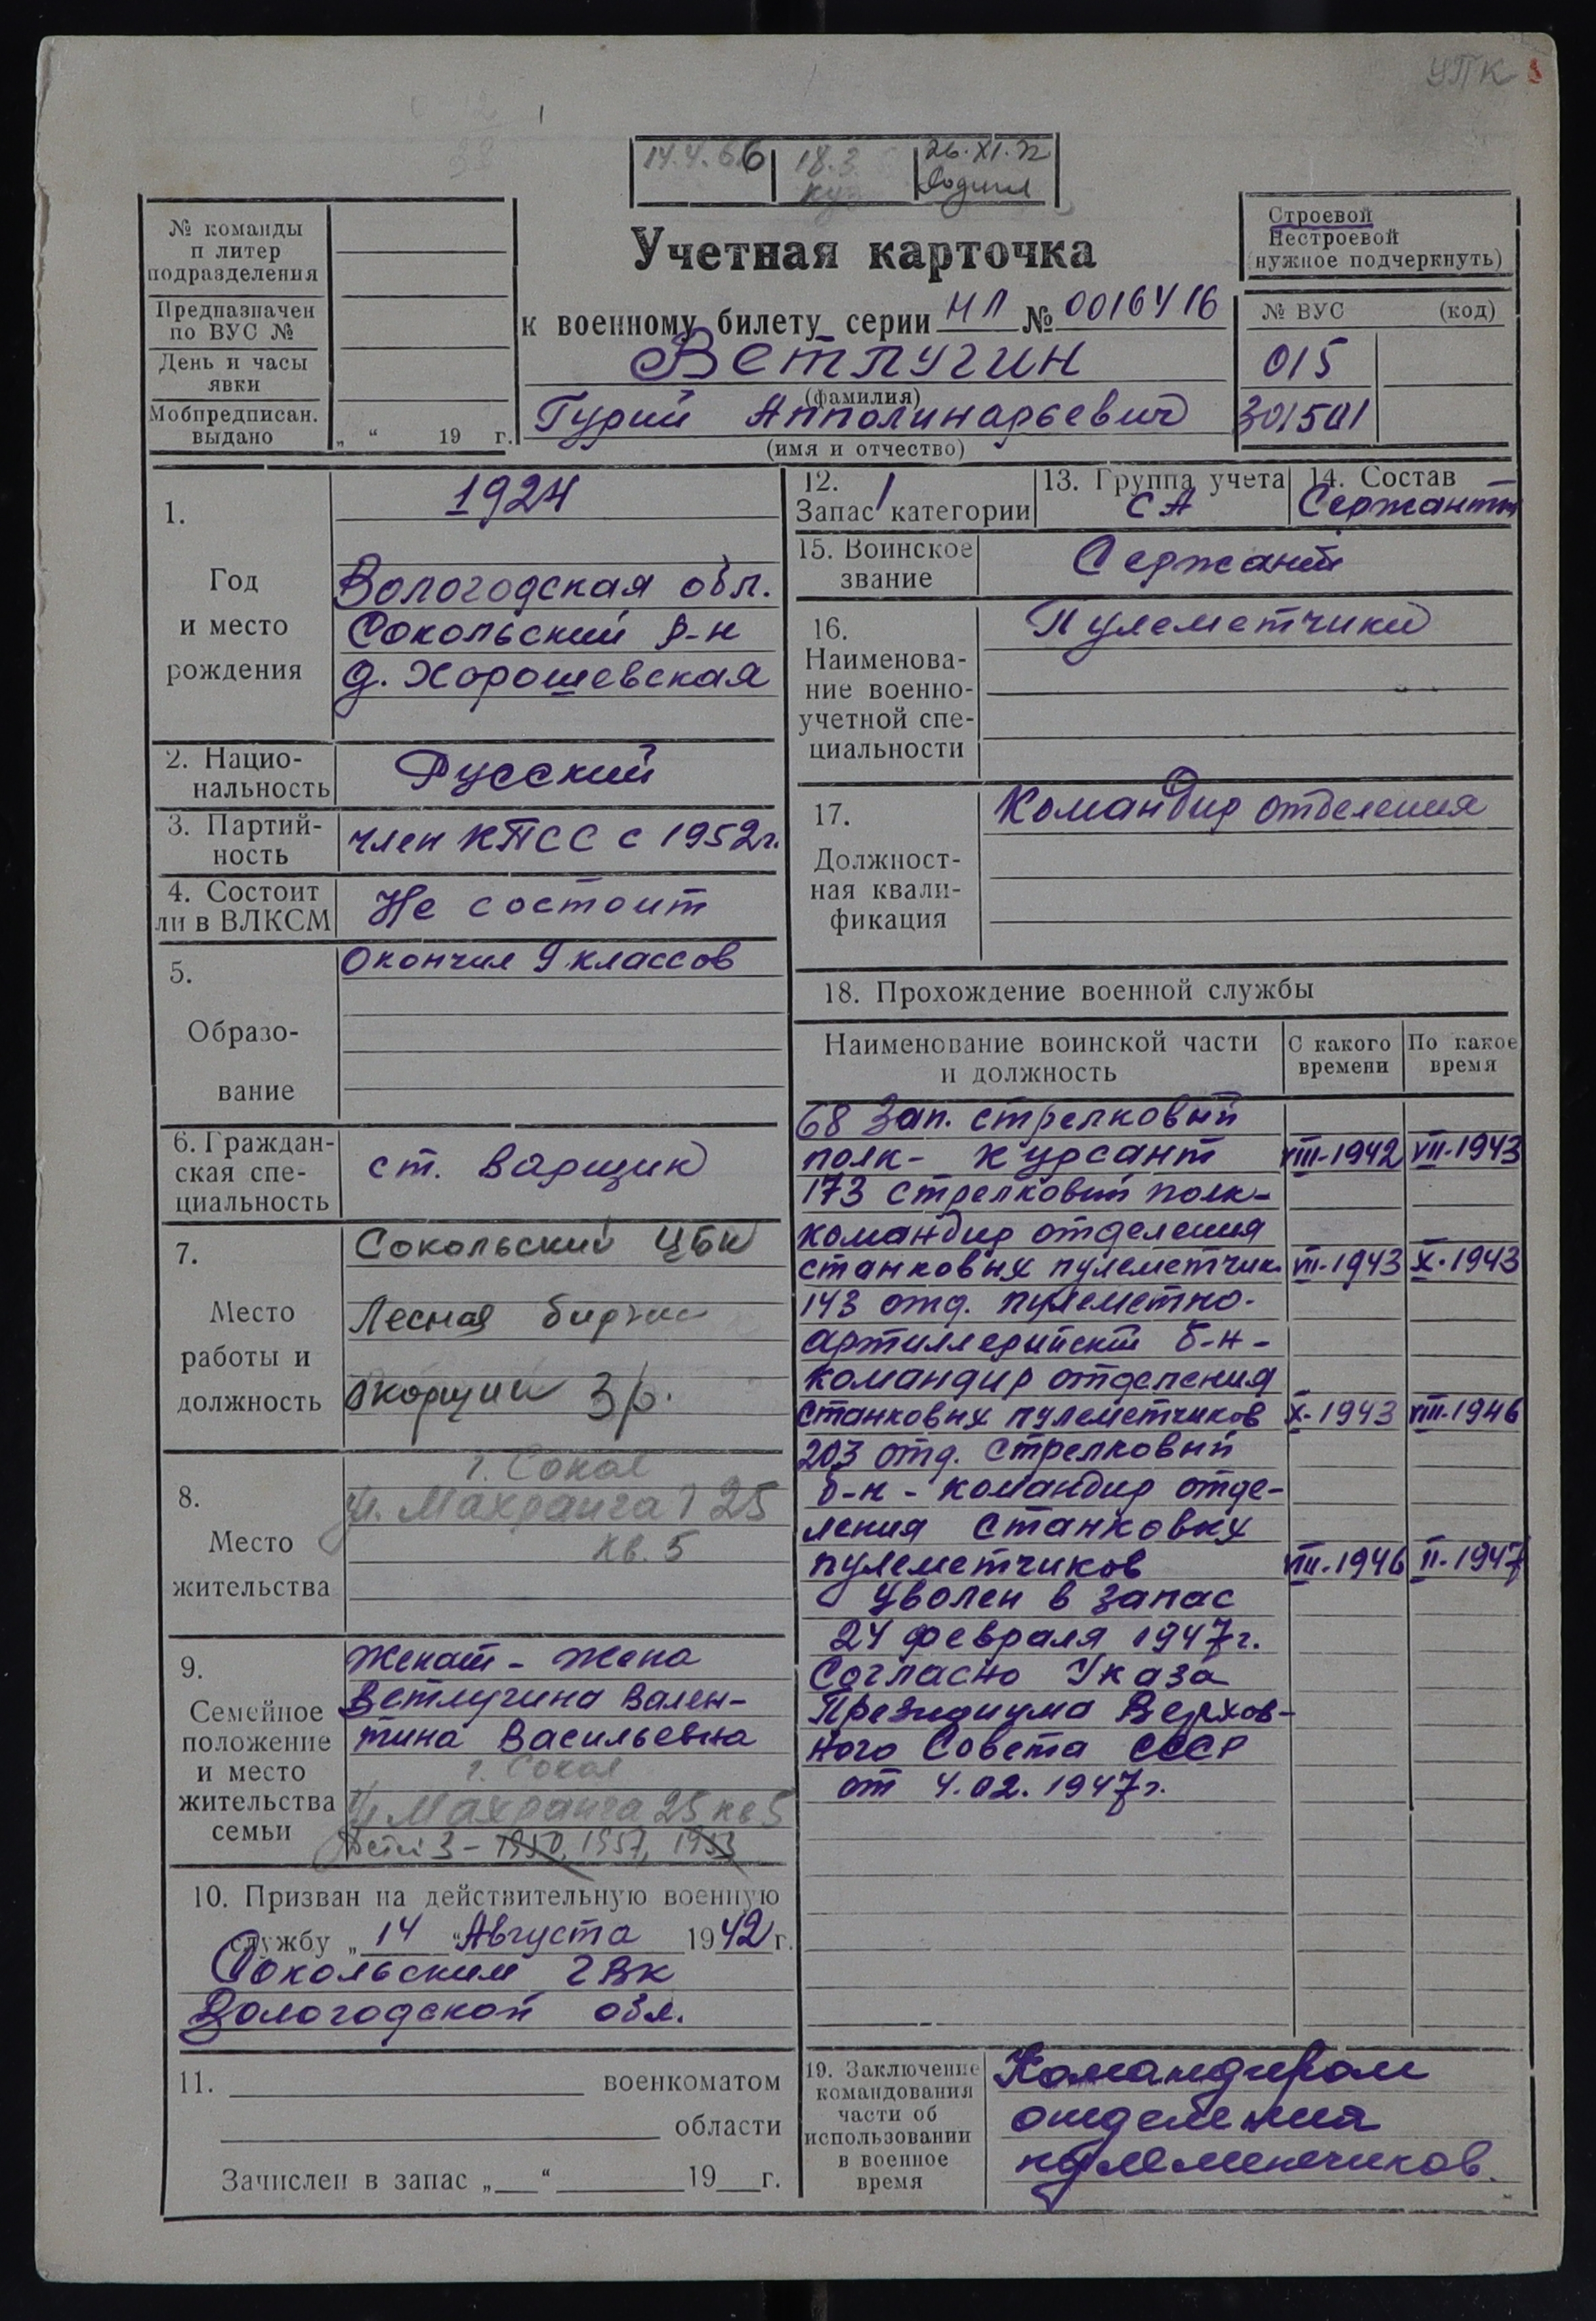 УПК
14.4.66 18.3. 26.XI.72
№ команды
и литер
подразделения
Предназначен
по ВУС №
День и часы
явки
Мобпредписан.
выдано „ “ 19 г.
Учетная карточка
к военному билету серии НЛ № 0016416
Ветлугин
(фамилия)
Гурий Апполинарьевич
(имя и отчество)
Строевой
Нестроевой
нужное подчеркнуть)
№ ВУС (код)
015
301501
1.
Год
и место
рождения
1924
Вологодская обл.
Сокольский р-н
д. Хорошевская
2. Нацио-
нальность
Русский
3. Партий-
ность
член КПСС с 1952г.
4. Состоит
ли в ВЛКСМ
Не состоит
5.
Образо-
вание
Окончил 9 классов
6. Граждан-
ская спе-
циальность
ст. варщик
7.
Место
работы и
должность
Сокольский ЦБК
Лесная биржа
окорщик 3р.
8.
Место
жительства
г. Сокол
25
кв. 5
9.
Семейное
положение
и место
жительства
семьи
Женат - жена
Ветлугина Вален-
тина Васильевна
г. Сокол
25 кв 5
Детей 3 - 1950, 1957, 1953
10. Призван на действительную военную
службу „ 14 “ Августа 1942 г.
Сокольским ГВК
Вологодской обл.
11. военкоматом
области
Зачислен в запас „ “ 19 г.
12. 1
Запас категории
13. Группа учета
СА
14. Состав
Сержанты
15. Воинское
звание
Сержант
16.
Наименова-
ние военно-
учетной спе-
циальности
Пулеметчики
17.
Должност-
ная квали-
фикация
Командир отделения
18. Прохождение военной службы
Наименование воинской части
и должность
С какого
времени
По какое
время
68 Зап. стрелковый
полк - курсант VIII-1942 VII-1943
173 стрелковый полк -
командир отделения
станковых пулеметчик. VII-1943 X-1943
143 отд. пулеметно-
артиллерийский б-н -
командир отделения
станковых пулеметчиков X-1943 VIII-1946
203 отд. стрелковый
б-н - командир отде-
ления станковых
пулеметчиков VIII-1946 II-1947
Уволен в запас
24 февраля 1947г.
Согласно Указа
Президиума Верхов-
ного Совета СССР
от 4.02.1947г.
19. Заключение
командования
части об
использовании
в военное
время
Командиром
отделения
пулеметчиков.